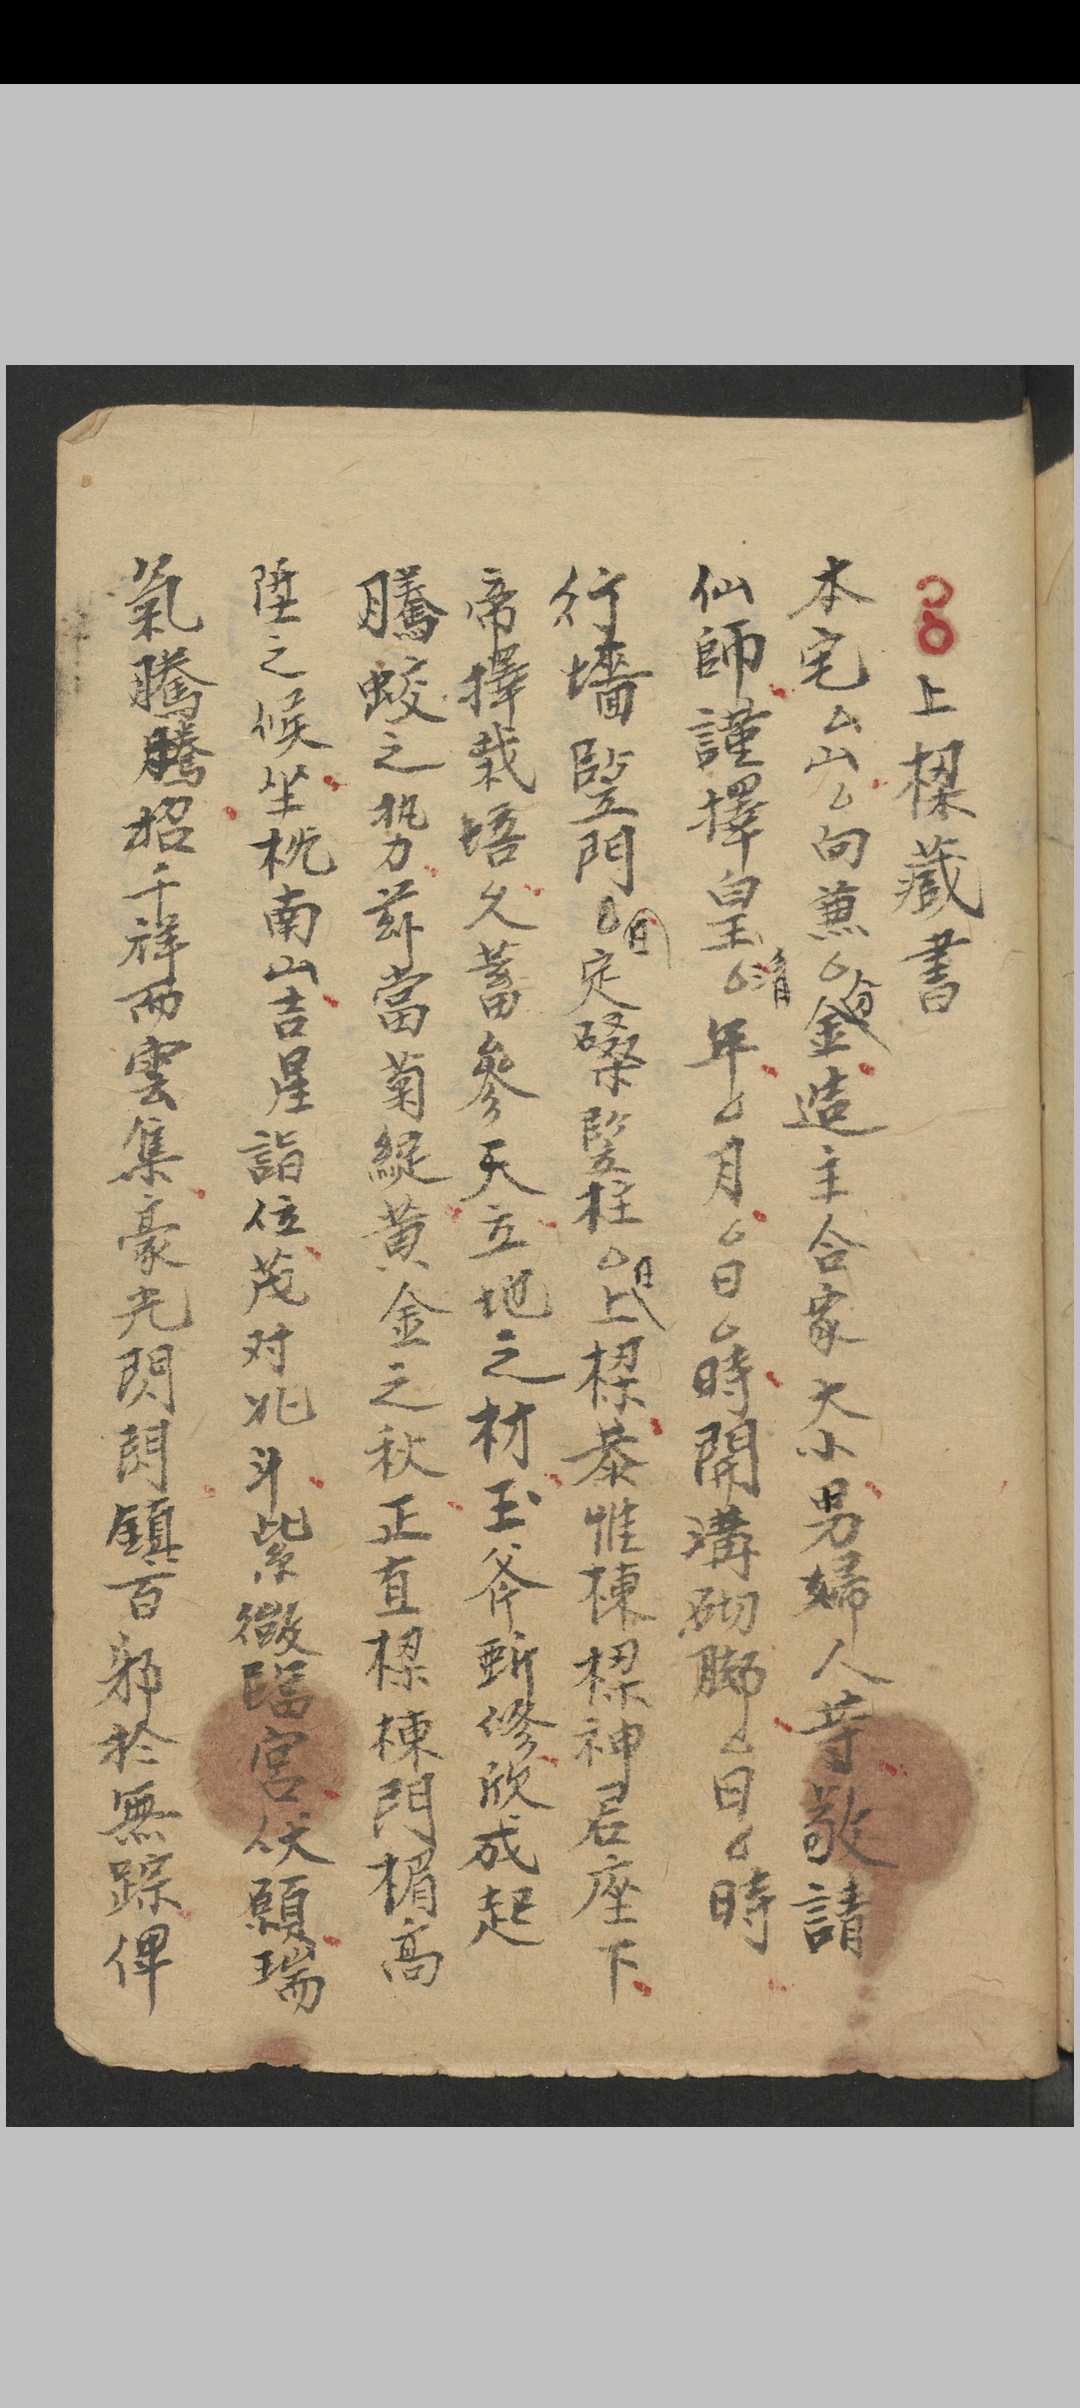 上樑藏書
本宅厶山厶向兼厶分金造主合家大小男婦人等敬請
仙師謹擇皇清厶年厶月厶日厶時開溝砌脚厶日厶時
行墻竪門厶日定磉竪柱厶日上樑恭惟棟樑神君座下
帝擇栽培久蓄參天立地之材玉斧斬修欣成起
騰蛟之势兹當菊綻黄金之秋正直樑棟門楣高
陞之候坐枕南山吉星詣位茂对北斗紫微臨宮伏願瑞
氣騰騰招千祥而雲集豪光閃閃鎮百邪於無踪俾